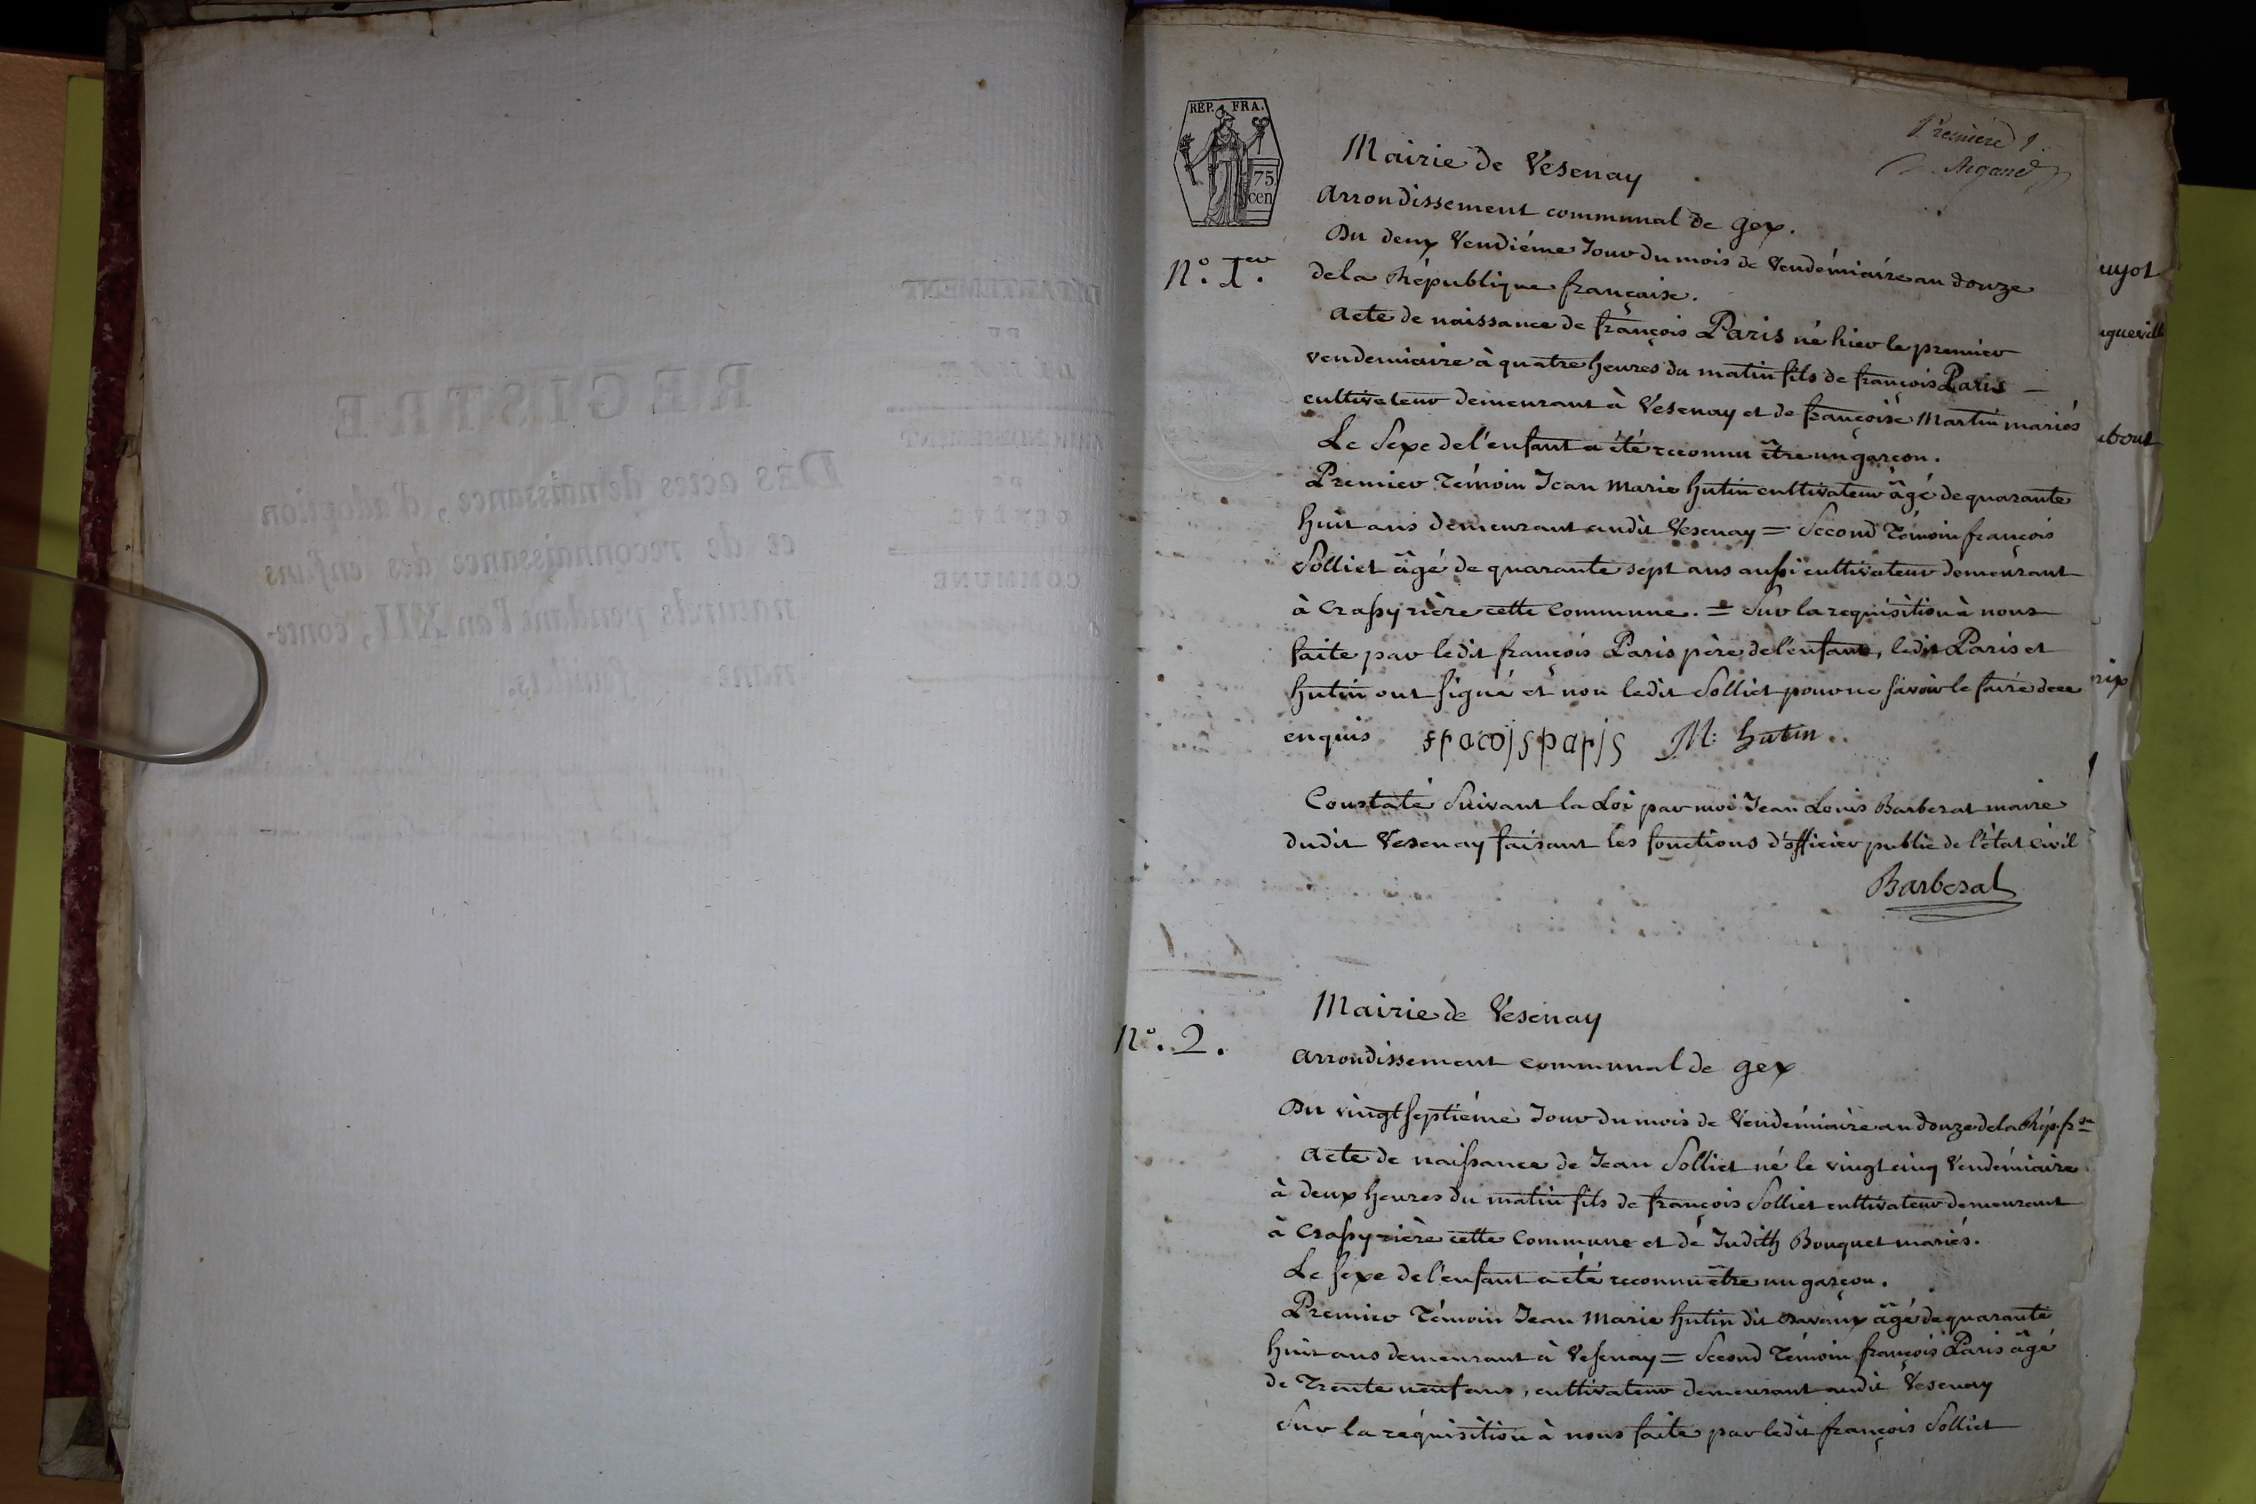 REP. FRA.
75
cen
Première
Argand
Mairie de Vesenay
Arrondissement communal de gex.
N.º 1.er
Du deux Vendiéme Jour du mois de Vendémiaire an douze
de la République française.
Acte de naissance de françois Paris né hier le premier
vendemiaire à quatre heures du matin fils de françois Paris
cultivateur demeurant à Vesenay et de françoise Martin mariés
Le Sexe de l'enfant a été reconnu être un garçon.
Premier Témoin Jean Marie hutin cultivateur âgé de quarante
huit ans demeurant audit Vesenay = Second Témoin françois
Solliet âgé de quarante sept ans aussi cultivateur demeurant
à Crassy rière cette Commune. = Sur la requisition à nous
faite par ledit françois Paris père de l'enfant, ledit Paris et
hutin ont signé et non ledit Solliet pour ne savoir le faire de ce
enquis fracois paris M: hutin.
Constaté Suivant la Loi par moi Jean Louis Barbezat maire
dudit Vesenay faisant les fonctions d'officier public de l'état civil
Barbezat
Mairie de Vesenay
N.º 2.
Arrondissement communal de gex
Du vingt septiéme Jour du mois de Vendémiaire an douze de la Rép. fse
Acte de naissance de Jean Solliet né le vingt cinq Vendémiaire
à deux heures du matin fils de françois Solliet cultivateur demeurant
à Crassy rière cette Commune et de Judith Bouquet mariés.
Le sexe de l'enfant a été reconnu être un garçon.
Premier Témoin Jean Marie hutin dit âgé de quarante
huit ans demeurant à Vesenay = Second Témoin françois Paris âgé
de Trente neuf ans, cultivateur demeurant audit Vesenay
Sur la réquisition à nous faite par ledit françois Solliet
REGISTRE
Des actes de naissance, d'adoption
et de reconnaissance des enfans
naturels pendant l'an XII, conte-
nant feuillets.
DÉPARTEMENT
DU
LÉMAN
ARRONDISSEMENT
DE
COMMUNE